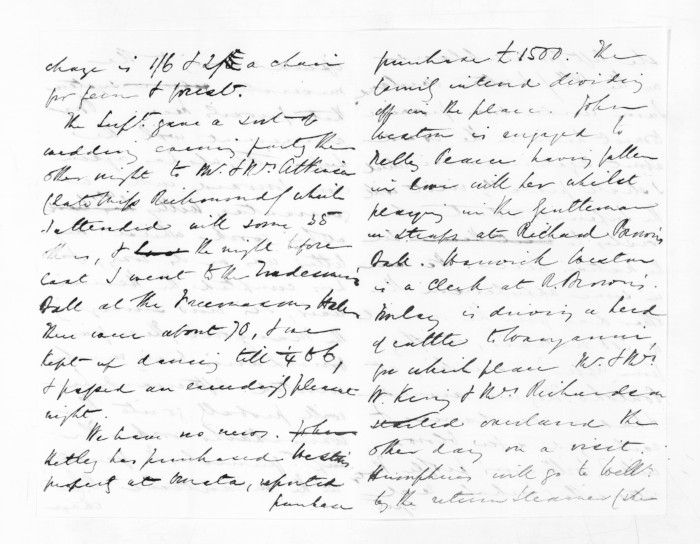 charge is 1/6 & 2/6 a chair
for first & finest.
The Supt. gave a sort of
wedding evening party the
other night to Mr. & Mrs. Atkinson
(late Miss Richmond) which
I attended with some 35
others, & the night before
last I went to the Tradesmens
Ball at the Freemasons Hall
There were about 70, & we
kept up dancing till ¼ to 6,
& passed an exceedingly pleasant
night.
We have no news. John
Hetley has purchased Weston's
property at Omata, reported
purchase
purchase £1500. The
family intend dividing
off in the place. John
Weston is engaged to
Nelly Pearce having fallen
in love with her whilst
playing in the Gentleman
in straps at Richard Brown's
Ball. Warwick Weston
is a Clerk at R. Brown's.
is driving a herd
of cattle to Wanganui,
for which place Mr. & Mrs.
W. King & Mrs. Richardson
started overland the
other day on a visit.
Humphries will go to Well:
by the return Steamer (the